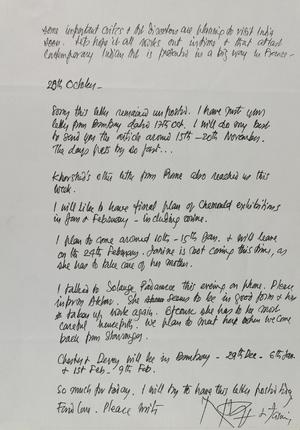 some important critics + the Directors are planning to visit India
soon. Let's hope it all works out in time + that at last
Contemporary Indian Art is presented in a big way in France -
28th October -
Sorry this letter remained unposted. I have just your
letter from Bombay dated 17th Oct. I will do my best
to send you the article around 15th - 20th November.
The days pass by so fast...
Khorshid's other letter from Rome also reached us this
week.
I will like to have final plan of Chemould exhibitions
in Jan + February - including mine.
I plan to come around 10th - 15th Jan. + will leave
on the 24th February. Janine is not coming this time, as
she has to take care of her mother.
I talked to Solange this evening on phone. Please
inform Akbar. She seems to be in good form + has
taken up work again. Of course she has to be most
careful hence. We plan to meet her when we come
back from
Chester + Davey will be in Bombay - 29th Dec - 6th Jan.
+ 1st Feb - 9th Feb.
So much for today. I will try to have this letter posted by
Please write